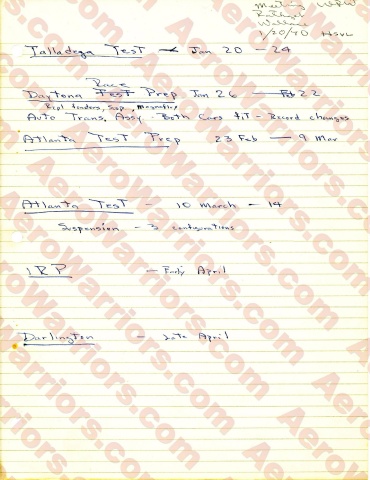 Meeting
1/20/70 HSVL
Talladega Test - Jan 20 - 24
Race
Daytona Test Prep Jan 26 — Feb 22
Repl fenders, Susp, Magnaflux
Auto Trans. Assy - Both Cars - Record changes
Atlanta Test Prep 23 Feb — 9 Mar
Atlanta Test - 10 March - 14
Suspension - 3 configurations
IRP — Early April
Darlington - Late April
AeroWarriors.com